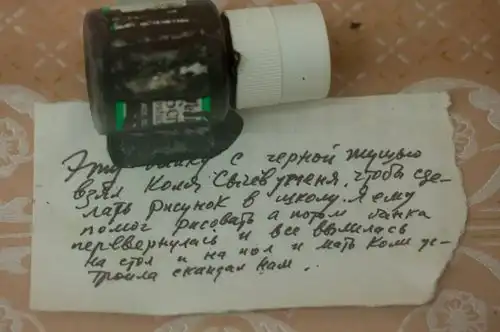 Эту банку с черной тущью
взял Коля Сычев у меня, чтобы сде-
лать рисунок в школу. Я ему
помог рисовать а потом банка
перевернулась и все вылилась
на стол и на пол и мать Коли ус-
троила скандал нам.